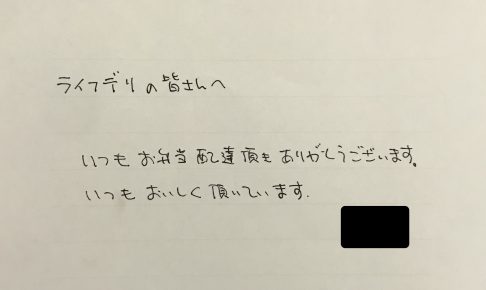 ライフデリの皆さんへ
いつもお弁当配達頂きありがとうございます。
いつもおいしく頂いています.